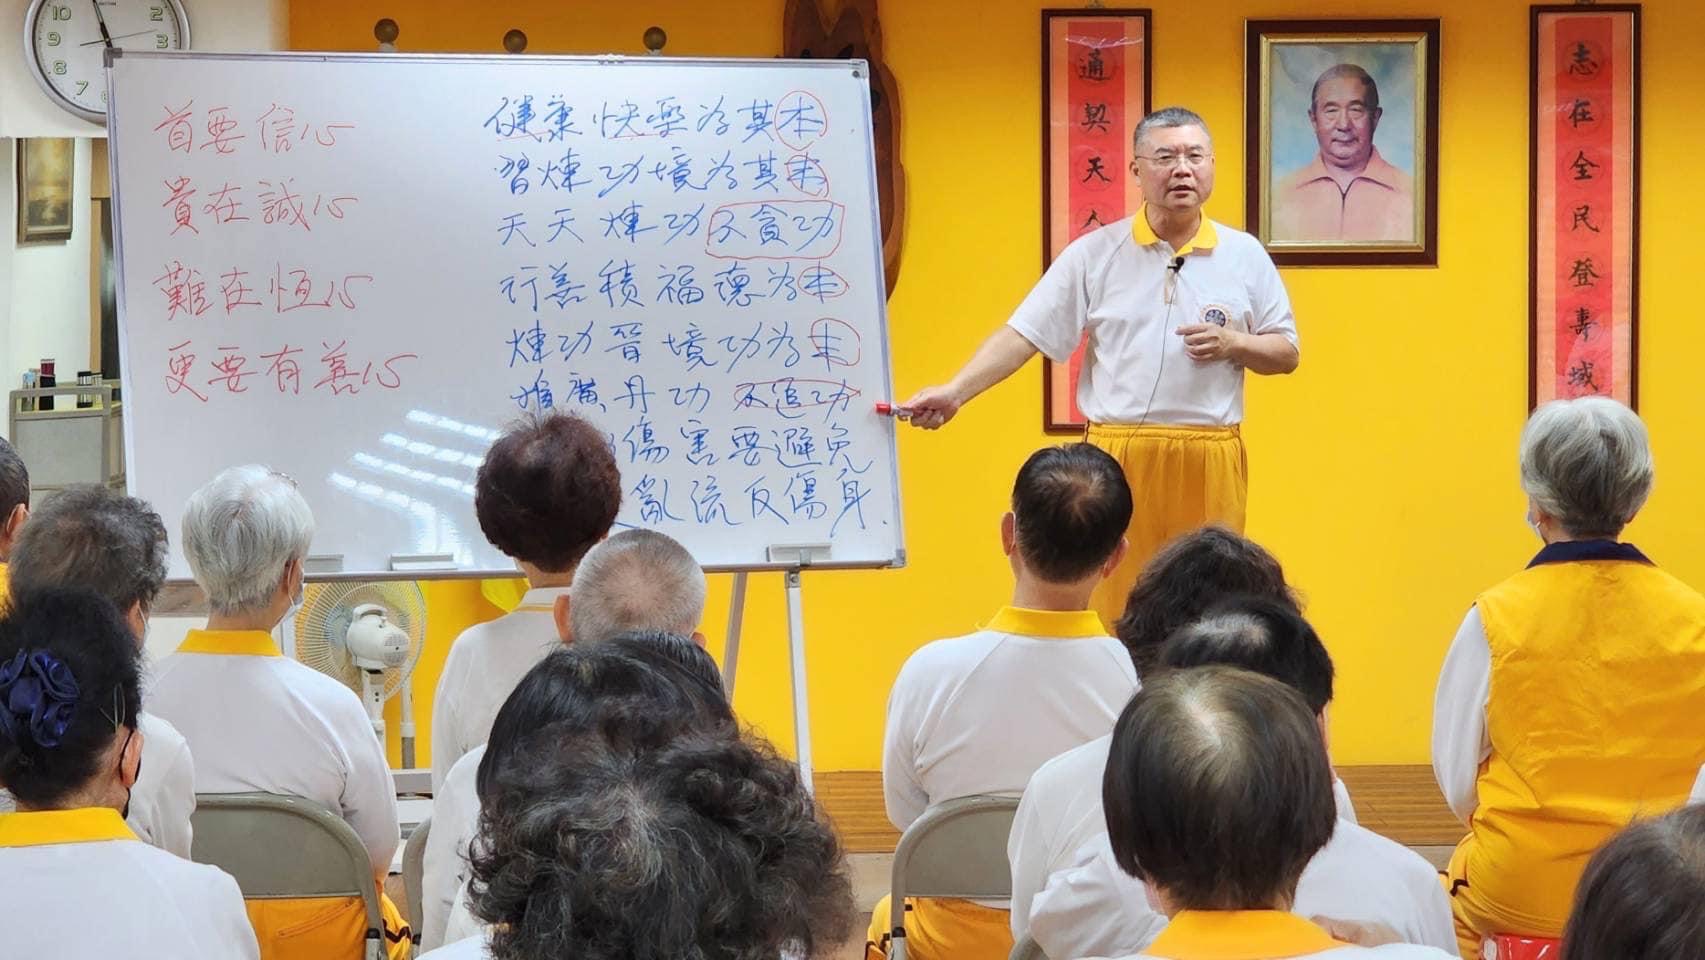 首要信心
貴在誠心
難在恆心
更要有善心
健康快樂為其本
習煉功境為其末
天天煉功不貪功
行善積福德為本
煉功晉境功為末
推廣丹功不追功
傷害要避免
亂流反傷身.
通契天人
志在全民登壽域
10
9
8
7
2
3